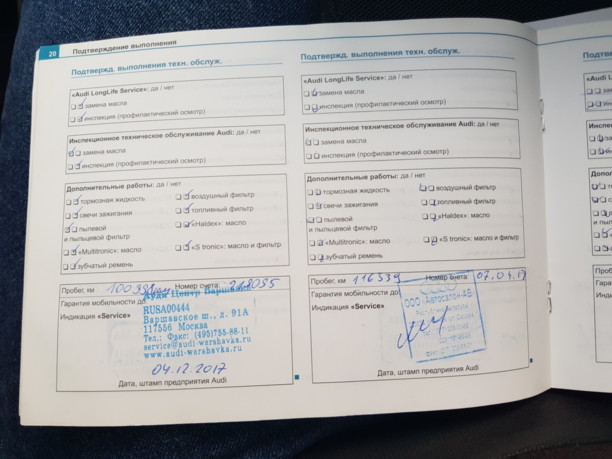 20
Подтверждение выполнения
Подтвержд. выполнения техн. обслуж.
«Audi LongLife Service»: да / нет
замена масла
инспекция (профилактический осмотр)
Инспекционное техническое обслуживание Audi: да / нет
замена масла
инспекция (профилактический осмотр)
Дополнительные работы: да / нет
тормозная жидкость
воздушный фильтр
свечи зажигания
топливный фильтр
пылевой
и пыльцевой фильтр
«Haldex»: масло
«Multitronic»: масло
«S tronic»: масло и фильтр
зубчатый ремень
Пробег, км
Номер счета:
Гарантия мобильности до
Индикация «Service»
Ауди Центр Варшавка
RUSA00444
Варшавское ш., д. 91А
117556 Москва
Тел.: Факс: (495)755-88-11
service@audi-warshavka.ru
www.audi-warshavka.ru
04.12.2017
Дата, штамп предприятия Audi
Подтвержд. выполнения техн. обслуж.
«Audi LongLife Service»: да / нет
замена масла
инспекция (профилактический осмотр)
Инспекционное техническое обслуживание Audi: да / нет
замена масла
инспекция (профилактический осмотр)
Дополнительные работы: да / нет
тормозная жидкость
воздушный фильтр
свечи зажигания
топливный фильтр
пылевой
и пыльцевой фильтр
«Haldex»: масло
«Multitronic»: масло
«S tronic»: масло и фильтр
зубчатый ремень
Пробег, км 116539 Номер счета:
Гарантия мобильности до
Индикация «Service»
ООО
Дата, штамп предприятия Audi